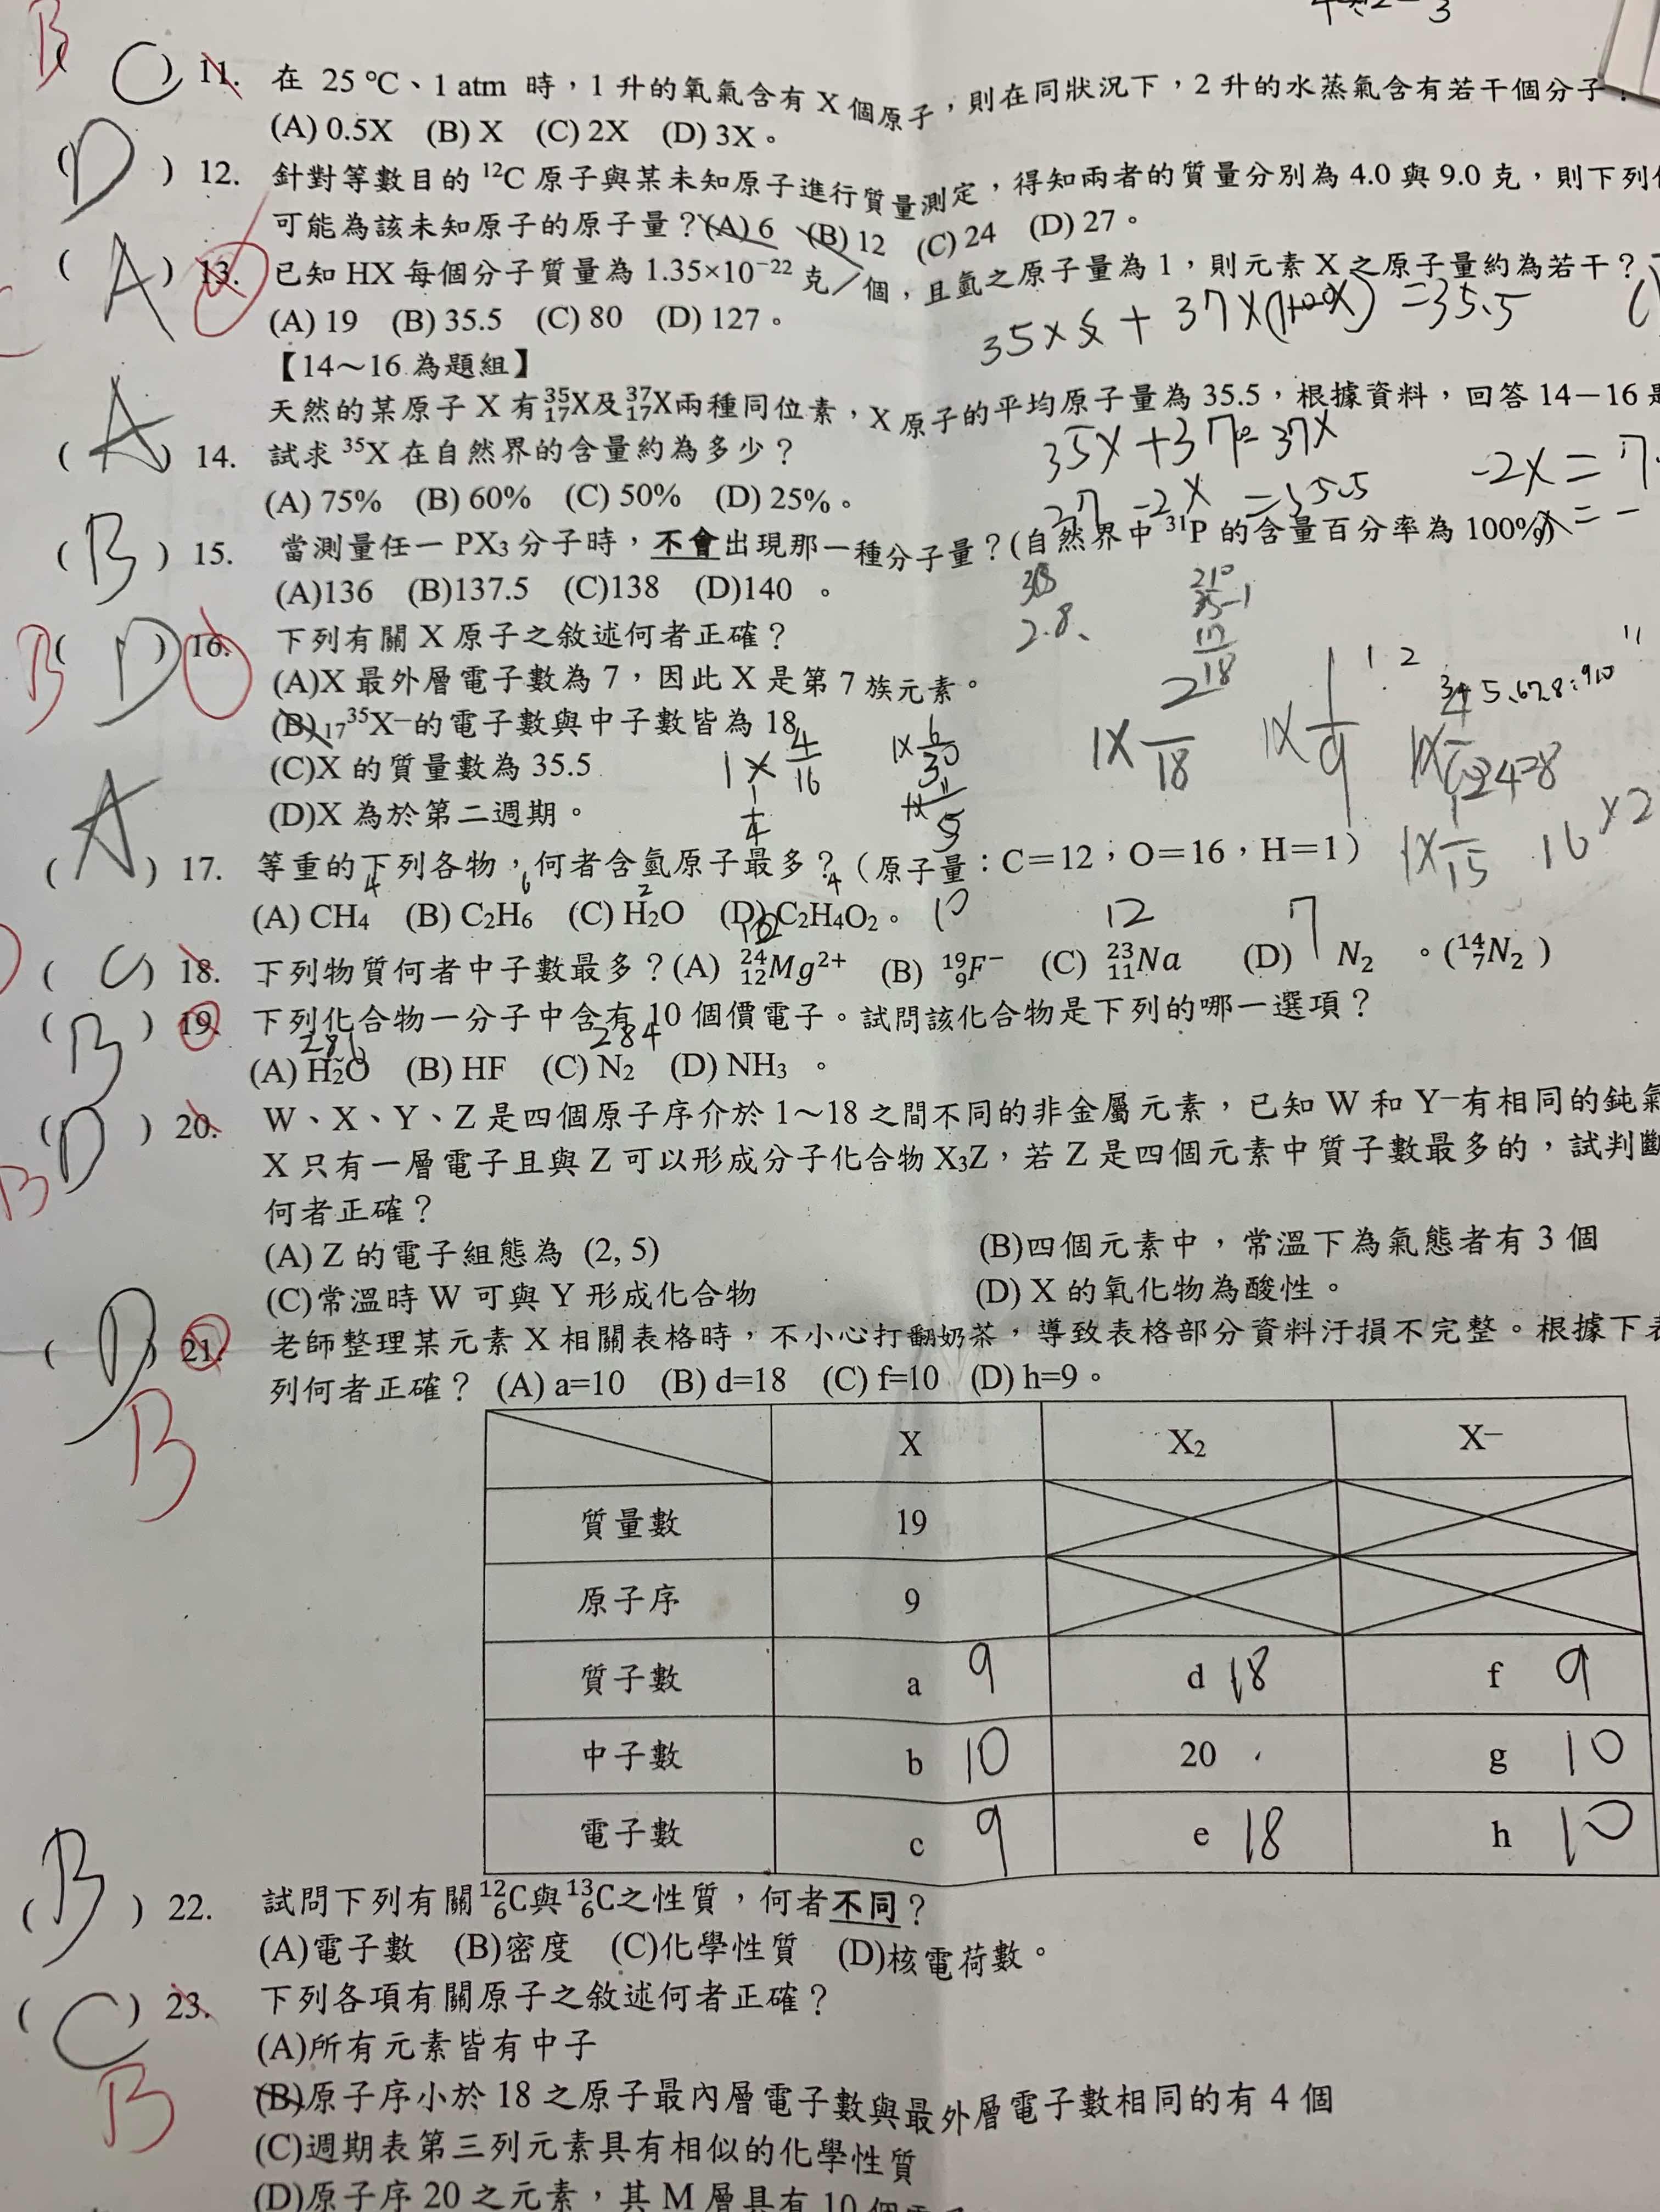 B
( C ) 11. 在 25 ℃、1 atm 時,1 升的氧氣含有 X 個原子,則在同狀況下,2 升的水蒸氣含有若干個分子?
(A) 0.5X (B) X (C) 2X (D) 3X。
( D ) 12. 針對等數目的 ¹²C 原子與某未知原子進行質量測定,得知兩者的質量分別為 4.0 與 9.0 克,則下列
可能為該未知原子的原子量?(A) 6 (B) 12 (C) 24 (D) 27。
( A ) 13. 已知 HX 每個分子質量為 1.35×10⁻²² 克/個,且氫之原子量為 1,則元素 X 之原子量約為若干?
(A) 19 (B) 35.5 (C) 80 (D) 127。
【14~16 為題組】
天然的某原子 X 有³⁵₁₇X及³⁷₁₇X兩種同位素,X 原子的平均原子量為 35.5,根據資料,回答 14-16
35X+37-37X
-2X=
( A ) 14. 試求 ³⁵X 在自然界的含量約為多少?
(A) 75% (B) 60% (C) 50% (D) 25%。
( B ) 15. 當測量任一 PX₃ 分子時,不會出現那一種分子量?(自然界中 ³¹P 的含量百分率為 100%)
(A)136 (B)137.5 (C)138 (D)140 。
B ( D ) 16. 下列有關 X 原子之敘述何者正確?
(A)X 最外層電子數為 7,因此 X 是第 7 族元素。
(B)₁₇³⁵X⁻的電子數與中子數皆為 18
(C)X 的質量數為 35.5
(D)X 為於第二週期。
1×4/16
1×6/30
1×2/18
1×1/9
1×1/15
( A ) 17. 等重的下列各物,何者含氫原子最多?(原子量:C=12,O=16,H=1)
4 6 2 4
(A) CH₄ (B) C₂H₆ (C) H₂O (D) C₂H₄O₂。
12 10 12 7
( C ) 18. 下列物質何者中子數最多?(A) ²⁴₁₂Mg²⁺ (B) ¹⁹₉F⁻ (C) ²³₁₁Na (D) N₂ 。(¹⁴₇N₂ )
( B ) 19. 下列化合物一分子中含有 10 個價電子。試問該化合物是下列的哪一選項?
(A) H₂O (B) HF (C) N₂ (D) NH₃ 。
( D ) 20. W、X、Y、Z 是四個原子序介於 1~18 之間不同的非金屬元素,已知 W 和 Y⁻有相同的鈍氣
B
X 只有一層電子且與 Z 可以形成分子化合物 X₃Z,若 Z 是四個元素中質子數最多的,試判斷
何者正確?
(A) Z 的電子組態為 (2, 5) (B)四個元素中,常溫下為氣態者有 3 個
(C)常溫時 W 可與 Y 形成化合物 (D) X 的氧化物為酸性。
( D ) 21. 老師整理某元素 X 相關表格時,不小心打翻奶茶,導致表格部分資料汙損不完整。根據下表
B
列何者正確? (A) a=10 (B) d=18 (C) f=10 (D) h=9。
X X₂ X⁻
質量數 19
原子序 9
質子數 a 9 d 18 f 9
中子數 b 10 20 g 10
電子數 c 9 e 18 h 10
( B ) 22. 試問下列有關¹²₆C與¹³₆C之性質,何者不同?
(A)電子數 (B)密度 (C)化學性質 (D)核電荷數。
( C ) 23. 下列各項有關原子之敘述何者正確?
B
(A)所有元素皆有中子
(B)原子序小於 18 之原子最內層電子數與最外層電子數相同的有 4 個
(C)週期表第三列元素具有相似的化學性質
(D)原子序 20 之元素,其 M 層具有 10 個